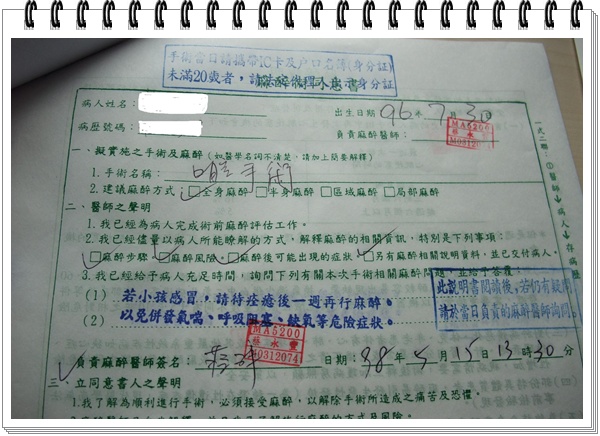 手術當日請攜帶IC卡及戶口名簿(身分証)
未滿20歲者，請
身分証
病人姓名：
出生日期 96年 7月 30
病歷號碼：
負責麻醉醫師：
MA5200
M0312074
一、擬實施之手術及麻醉（如醫學名詞不清楚，請加上簡要解釋）
1.手術名稱：口腔手術
2.建議麻醉方式 □全身麻醉 □半身麻醉 □區域麻醉 □局部麻醉
二、醫師之聲明
1.我已經為病人完成術前麻醉評估工作。
2.我已經儘量以病人所能瞭解的方式，解釋麻醉的相關資訊，特別是下列事項：
□麻醉步驟 □麻醉風險 □麻醉後可能出現的症狀 □另有麻醉相關說明資料，並已交付病人。
3.我已經給予病人充足時間，詢問下列有關本次手術相關麻醉問題，並給予答覆：
(1) 若小孩感冒，請待痊癒後一週再行麻醉。
(2) 以免併發氣喘、呼吸阻塞、缺氧等危險症狀。
此說明書閱讀後，若仍有疑問
請於當日負責的麻醉醫師詢問
MA5200
M0312074
負責麻醉醫師簽名：
日期：98年 5月 15日 13時 30分
三、立同意書人之聲明
1.我了解為順利進行手術，必須接受麻醉，以解除手術所造成之痛苦及恐懼。
一式二聯：①醫師→病人→存病歷